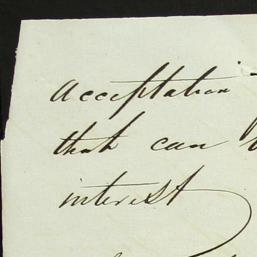 acceptation
that can
interest